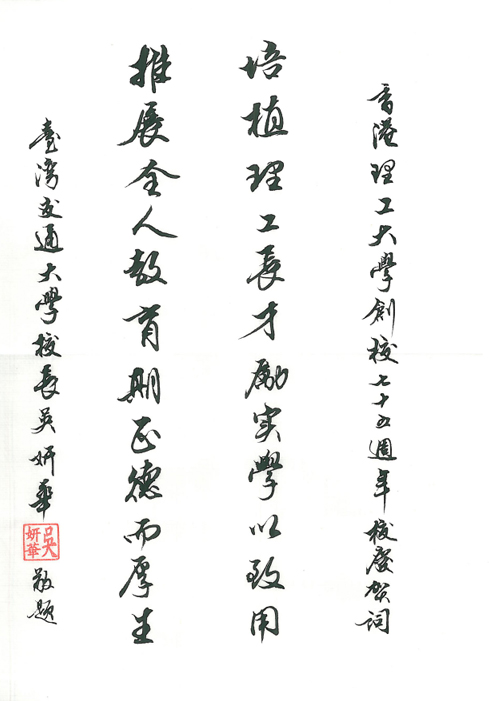 香港理工大學創校七十五週年校慶賀詞
培植理工長才勵实學以致用
推展全人教育期正德而厚生
臺灣交通大學校長吳妍華
吳妍華
敬題